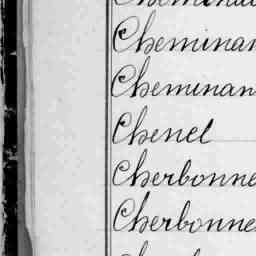 Cheminan
Cheminan
Chenel
Cherbonne
Cherbonne